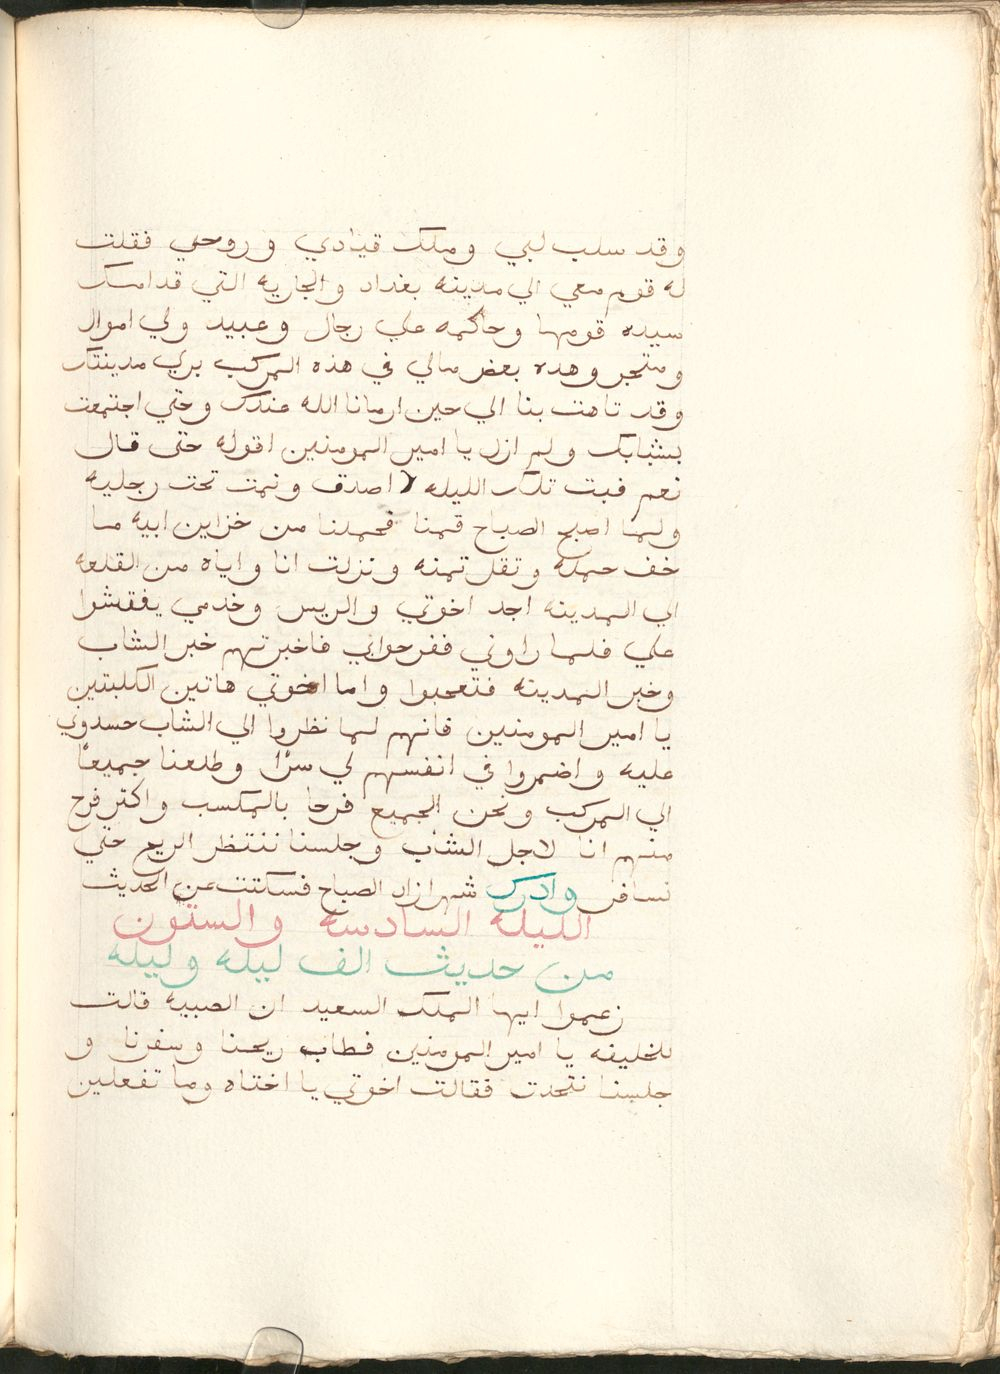 وقد سلب لبي وملك قيادي وروحي فقلت
له قوم معي الي مدينه بغداد والجاريه التي قدامك
سيده قومها وحاكمه علي رجال وعبيد ولي اموال
ومتجر وهده بعض مالي في هذه المركب بري مدينتك
وقد تاهت بنا الي حين ارمانا الله عندك وحتي اجتمعت
بشبابك ولم ازل يا امير المومنين اقوله حتى قال
نعم فبت تلك الليله لا اصدق ونمت تحت رجليه
ولما اصبح الصباح قمنا فحملنا من خزاين ابيه ما
خف حمله وتقل تمنه ونزلت انا واياه من القلعه
الي المدينه اجد اخوتي والريس وخدمي يفقشوا
علي فلما راوني ففرحواني فاخبرتهم خبر الشاب
وخبر المدينه فتعجبوا واما اخوتي هاتين الكلبتين
يا امير المومنين فانهم لما نظروا الي الشاب حسدوني
عليه واضمروا في انفسهم لي سرًا وطلعنا جميعًا
الي المركب ونحن الجميع فرحا بالمكسب واكتر فرح
منهم انا لاجل الشاب وجلسنا ننتظر الريح حتي
نسافر وادرك شهرازاد الصباح فسكتت عن الحديث
الليله السادسه والستون
من حديث الف ليله وليله
زعموا ايها الملك السعيد ان الصبيه قالت
للخليفه يا امير المومنين فطاب ريحنا وسفرنا و
جلسنا نتحدت فقالت اخوتي يا اختاه وما تفعلين